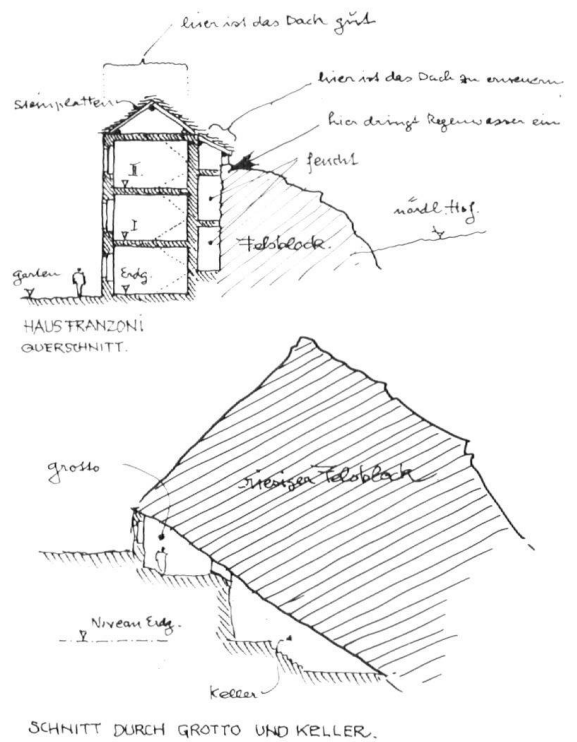 hier ist das Dach gut
hier ist das Dach zu erneuern
Steinplatten
hier dringt Regenwasser ein
feucht
II
nördl. Hof.
I
Felsblock.
Garten
Erdg.
HAUS FRANZONI
QUERSCHNITT.
grotto
riesiger Felsblock
Niveau Erdg.
Keller
SCHNITT DURCH GROTTO UND KELLER.